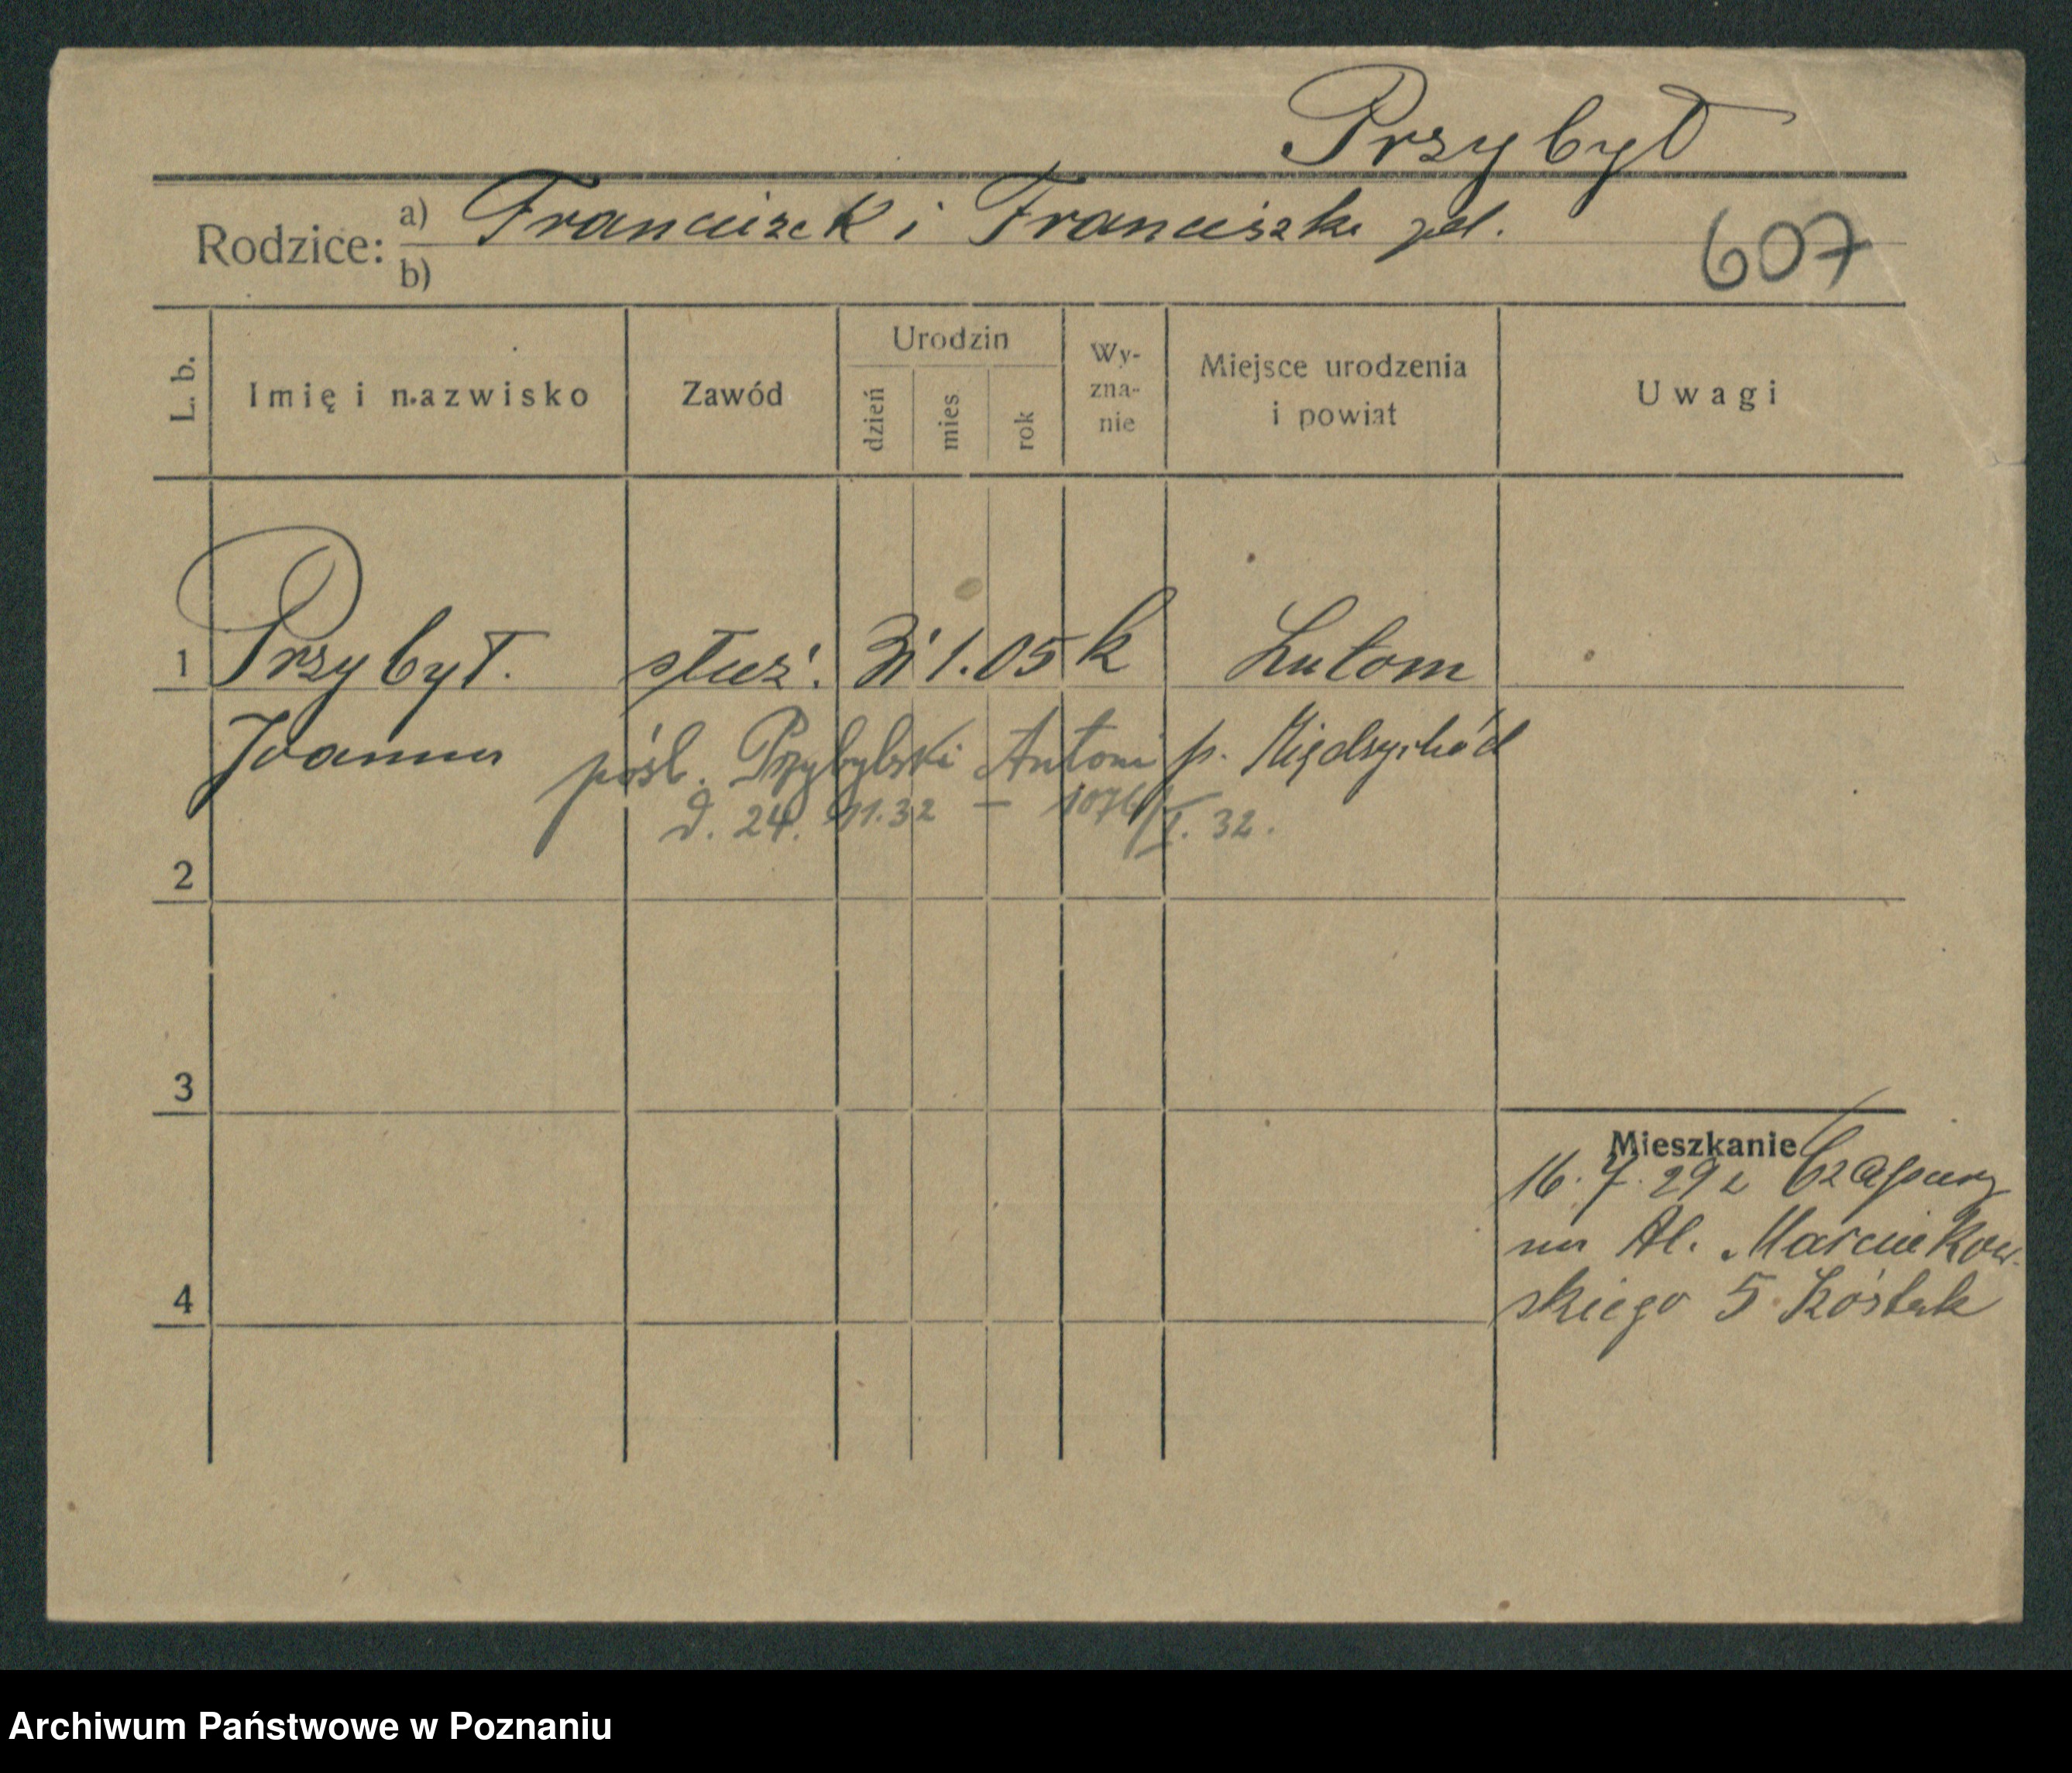 Przybył
Rodzice: a) Franciszek i Franciszka
b)
607
L. b.
Imię i nazwisko
Zawód
Urodzin
dzień
mies
rok
Wy-
zna-
nie
Miejsce urodzenia
i powiat
Uwagi
1 Przybył. służ. 31 1. 05 k Lutom
Joanna p. Międzychód
pośl. Przybylski Antoni
d. 24. 11. 32 – 1076/I. 32.
2
3
4
Mieszkanie
16. 7. 29 z Czapury
na Al. Marcinkow-
skiego 5
Archiwum Państwowe w Poznaniu